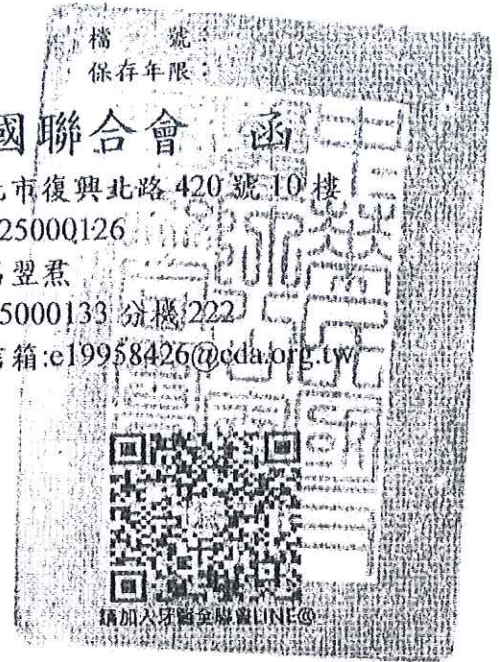 檔 號
保存年限
國聯合會 函
北市復興北路 420 號 10 樓
25000126
翌焄
5000133 分機 222
箱:e19958426@cda.org.tw
請加入牙醫全聯會LINE@